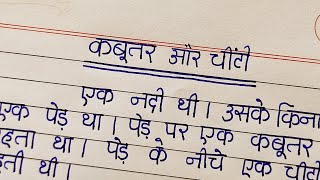 कबूतर और चींटी
एक नदी थी। उसके किना
एक पेड़ था। पेड़ पर एक कबूतर
हता था। पेड़ के नीचे एक चींटी
हती थी।